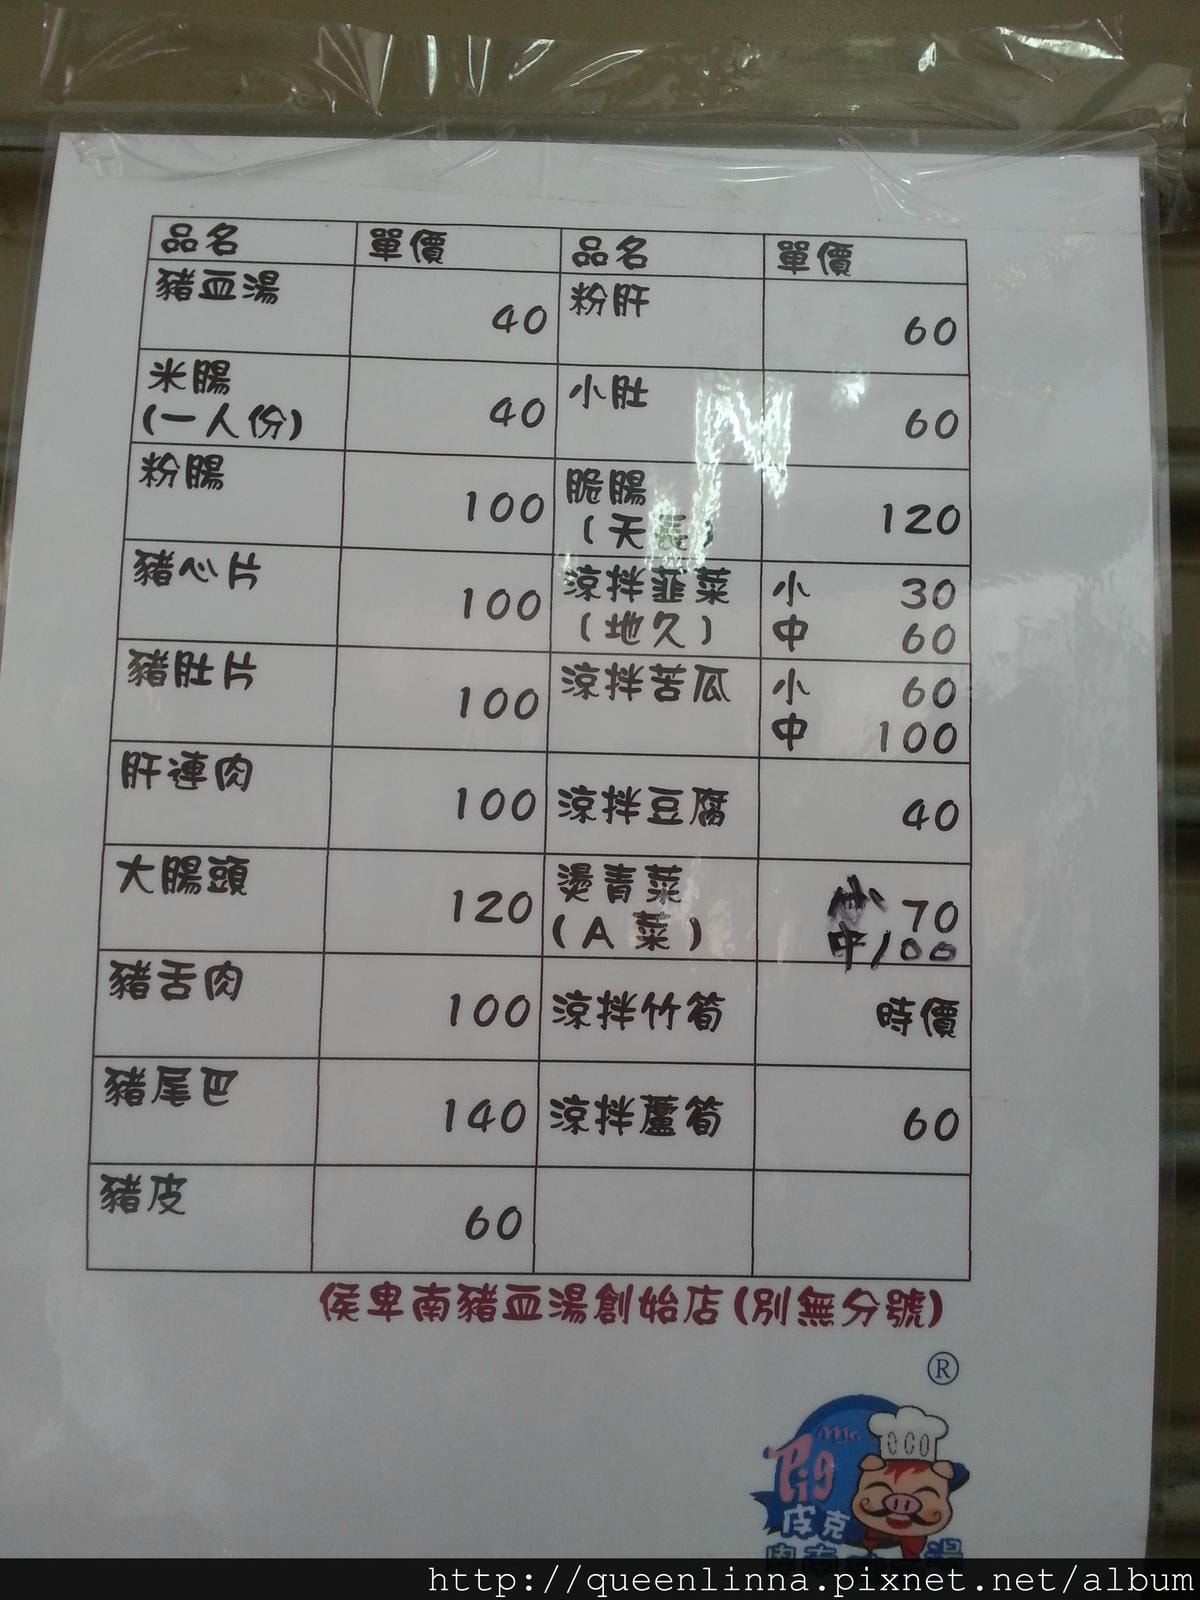 品名 單價 品名 單價
豬血湯 40 粉肝 60
米腸
(一人份) 40 小肚 60
粉腸 100 脆腸
(天長) 120
豬心片 100 涼拌韮菜
(地久) 小 30
中 60
豬肚片 100 涼拌苦瓜 小 60
中 100
肝連肉 100 涼拌豆腐 40
大腸頭 120 燙青菜
(A 菜) 小 70
中/100
豬舌肉 100 涼拌竹筍 時價
豬尾巴 140 涼拌蘆筍 60
豬皮 60
侯卑南豬血湯創始店(別無分號)
®
Mr.
Pig
皮克
湯
http://queenlinna.pixnet.net/album